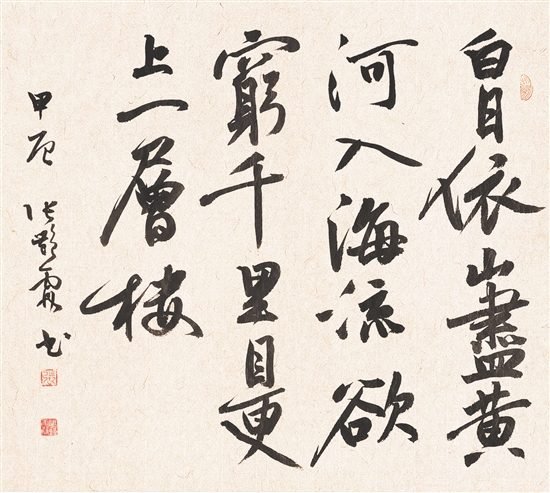 白日依山盡黄
河入海流欲
窮千里目更
上一層樓
甲辰 张霞书